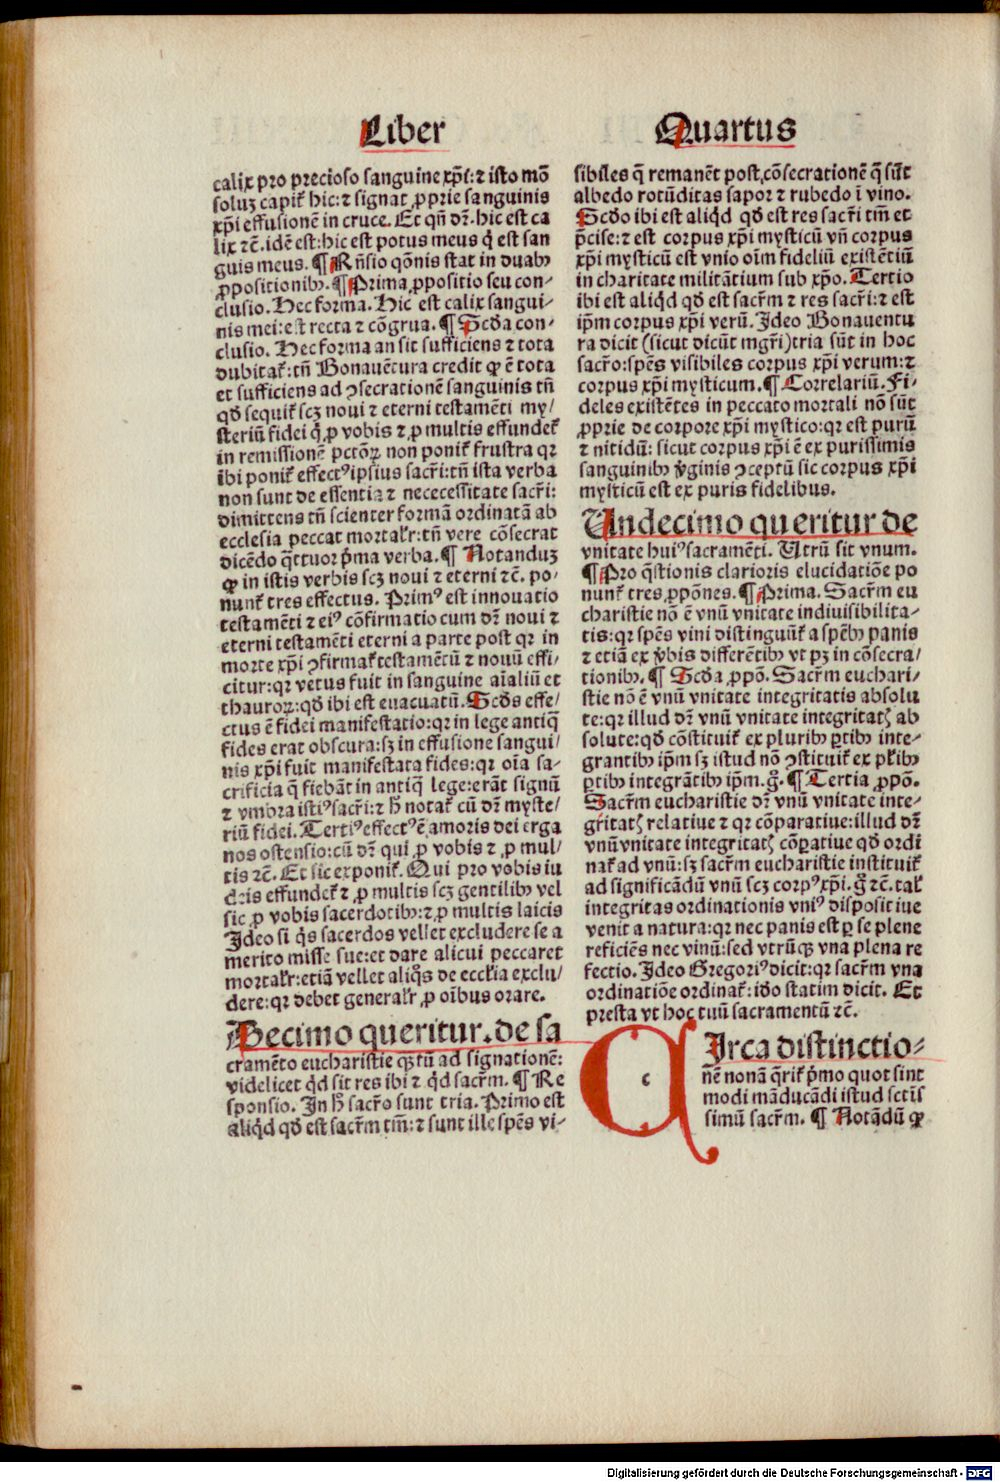 Liber Quartus
calix pro precioso sanguine xp̄i: ⁊ isto mō
soluꝫ capit᷑ hic: ⁊ signat ꝓprie sanguinis
xp̄i effusionē in cruce. Et qn̄ dr̄. hic est ca
lix ⁊c̄. idē est: hic est potus meus q̇ est san
guis meus. ¶ Rn̄sio qōnis stat in duabꝰ
ꝓpositionibꝰ. ¶ Prima ꝓpositio seu con⸗
clusio. Hec forma. Hic est calix sangui⸗
nis mei: est recta ⁊ cōgrua. ¶ Scd̄a con⸗
clusio. Hec forma an sit sufficiens ⁊ tota
dubitat᷑: tn̄ Bonauētura credit ꝙ ē tota
et sufficiens ad ꝯsecrationē sanguinis tn̄
qd̄ sequit᷑ scꝫ noui ⁊ eterni testamēti my⸗
steriū fidei q̇ ꝓ vobis ⁊ ꝓ multis effundet᷑
in remissionē pctōꝝ non ponit᷑ frustra qꝛ
ibi ponit᷑ effectꝰ ipsius sacr̄i: tn̄ ista verba
non sunt de essentia ⁊ nececessitate sacr̄i:
dimittens tn̄ scienter formā ordinatā ab
ecclesia peccat mortalr̄: tn̄ vere cōsecrat
dicēdo q̄ttuor p̄ma verba. ¶ Notanduꝫ
ꝙ in istis verbis scꝫ noui ⁊ eterni ⁊c̄. po⸗
nunt᷑ tres effectus. Primꝰ est innouatio
testamēti ⁊ eiꝰ cōfirmatio cum dr̄ noui ⁊
eterni testamēti eterni a parte post qꝛ in
morte xp̄i ꝯfirmat᷑ testamētū ⁊ nouū effi⸗
citur: qꝛ vetus fuit in sanguine aīaliū et
thauroꝝ: qd̄ ibi est euacuatū. Scd̄s effe⸗
ctus ē fidei manifestatio: qꝛ in lege antiq̄
fides erat obscura: sꝫ in effusione sangui⸗
nis xp̄i fuit manifestata fides: qꝛ oīa sa⸗
crificia q̄ fiebāt in antiq̄ lege: erāt signū
⁊ vmbra istiꝰ sacr̄i: ⁊ h̄ notat᷑ cū dr̄ myste⸗
riū fidei. Tertiꝰ effectꝰ ē amoris dei erga
nos ostensio: cū dr̄ qui ꝓ vobis ⁊ ꝓ mul⸗
tis ⁊c̄. Et sic exponit᷑. Qui pro vobis iu
deis effundet᷑ ⁊ ꝓ multis scꝫ gentilibꝰ vel
sic ꝓ vobis sacerdotibꝰ: ⁊ ꝓ multis laicis
Ideo si q̇s sacerdos vellet excludere se a
merito misse sue: et dare alicui peccaret
mortalr̄: etiā vellet aliq̇s de ecclīa exclu⸗
dere: qꝛ debet generalr̄ ꝓ oībus orare.
Decimo queritur. de sa
cramēto eucharistie qꝫtū ad signationē:
videlicet q̇d sit res ibi ⁊ q̇d sacr̄m. ¶ Re
sponsio. In h̄ sacr̄o sunt tria. Primo est
aliq̇d qd̄ est sacr̄m tm̄: ⁊ sunt ille spēs vi⸗
sibiles q̄ remanēt post cōsecrationē q̄ sūt
albedo rotūditas sapor ⁊ rubedo ī vino.
Scd̄o ibi est aliq̇d qd̄ est res sacr̄i tm̄ et
p̄cise: ⁊ est corpus xp̄i mysticū vn̄ corpus
xp̄i mysticū est vnio oīm fideliū existētiū
in charitate militātium sub xp̄o. Tertio
ibi est aliq̇d qd̄ est sacr̄m ⁊ res sacr̄i: ⁊ est
ip̄m corpus xp̄i verū. Ideo Bonauentu
ra dicit (sicut dicūt mgr̄i) tria sūt in hoc
sacr̄o: spēs visibiles corpus xp̄i verum: ⁊
corpus xp̄i mysticum. ¶ Correlariū. Fi⸗
deles existētes in peccato mortali nō sūt
ꝓprie de corpore xp̄i mystico: qꝛ est purū
⁊ nitidū: sicut corpus xp̄i ē ex purissimis
sanguinibꝰ v̓ginis ꝯceptū sic corpus xp̄i
mysticū est ex puris fidelibus.
Undecimo queritur de
vnitate huiꝰ sacramēti. Utrū sit vnum.
¶ Pro q̄stionis clarioris elucidatiōe po
nunt᷑ tres ꝓpōnes. ¶ Prima. Sacr̄m eu
charistie nō ē vnū vnitate indiuisibilita⸗
tis: qꝛ spēs vini distinguūt᷑ a spēbꝰ panis
⁊ etiā ex v̓bis differētibꝰ vt pꝫ in cōsecra⸗
tionibꝰ. ¶ Scd̄a ꝓpō. Sacr̄m euchari⸗
stie nō ē vnū vnitate integritatis absolu
te: qꝛ illud dr̄ vnū vnitate integritatꝭ ab
solute: qd̄ cōstituit᷑ ex pluribꝰ ꝑtibꝰ inte⸗
grantibꝰ ip̄m sꝫ istud nō ꝯstituit᷑ ex pl̓ibꝰ
ꝑtibꝰ integrātibꝰ ip̄m. g̊. ¶ Tertia ꝓpō.
Sacr̄m eucharistie dr̄ vnū vnitate inte⸗
gritatꝭ relatiue ⁊ qꝛ cōparatiue: illud dr̄
vnū vnitate integritatꝭ cōꝑatiue qd̄ ordi
nat᷑ ad vnū: sꝫ sacr̄m eucharistie instituit᷑
ad significādū vnū scꝫ corpꝰ xp̄i. g̊ ⁊c̄. tal᷑
integritas ordinationis vniꝰ dispositiue
venit a natura: qꝛ nec panis est ꝑ se plene
reficiēs nec vinū: sed vtrūqꝫ vna plena re
fectio. Ideo Gregoriꝰ dicit: qꝛ sacr̄m vna
ordinatiōe ordinat᷑: ido statim dicit. Et
presta vt hoc tuū sacramentū ⁊c̄.
Circa distinctio⸗
nē nonā q̄rit᷑ p̄mo quot sint
modi māducādi istud sctīs
simū sacr̄m. ¶ Notādū ꝙ
Digitalisierung gefördert durch die Deutsche Forschungsgemeinschaft - DFG